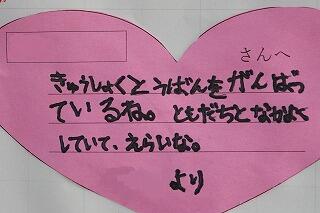 さんへ
きゅうしょくとうばんをがんばっ
ているね。ともだちとなかよく
していて、えらいな。
より